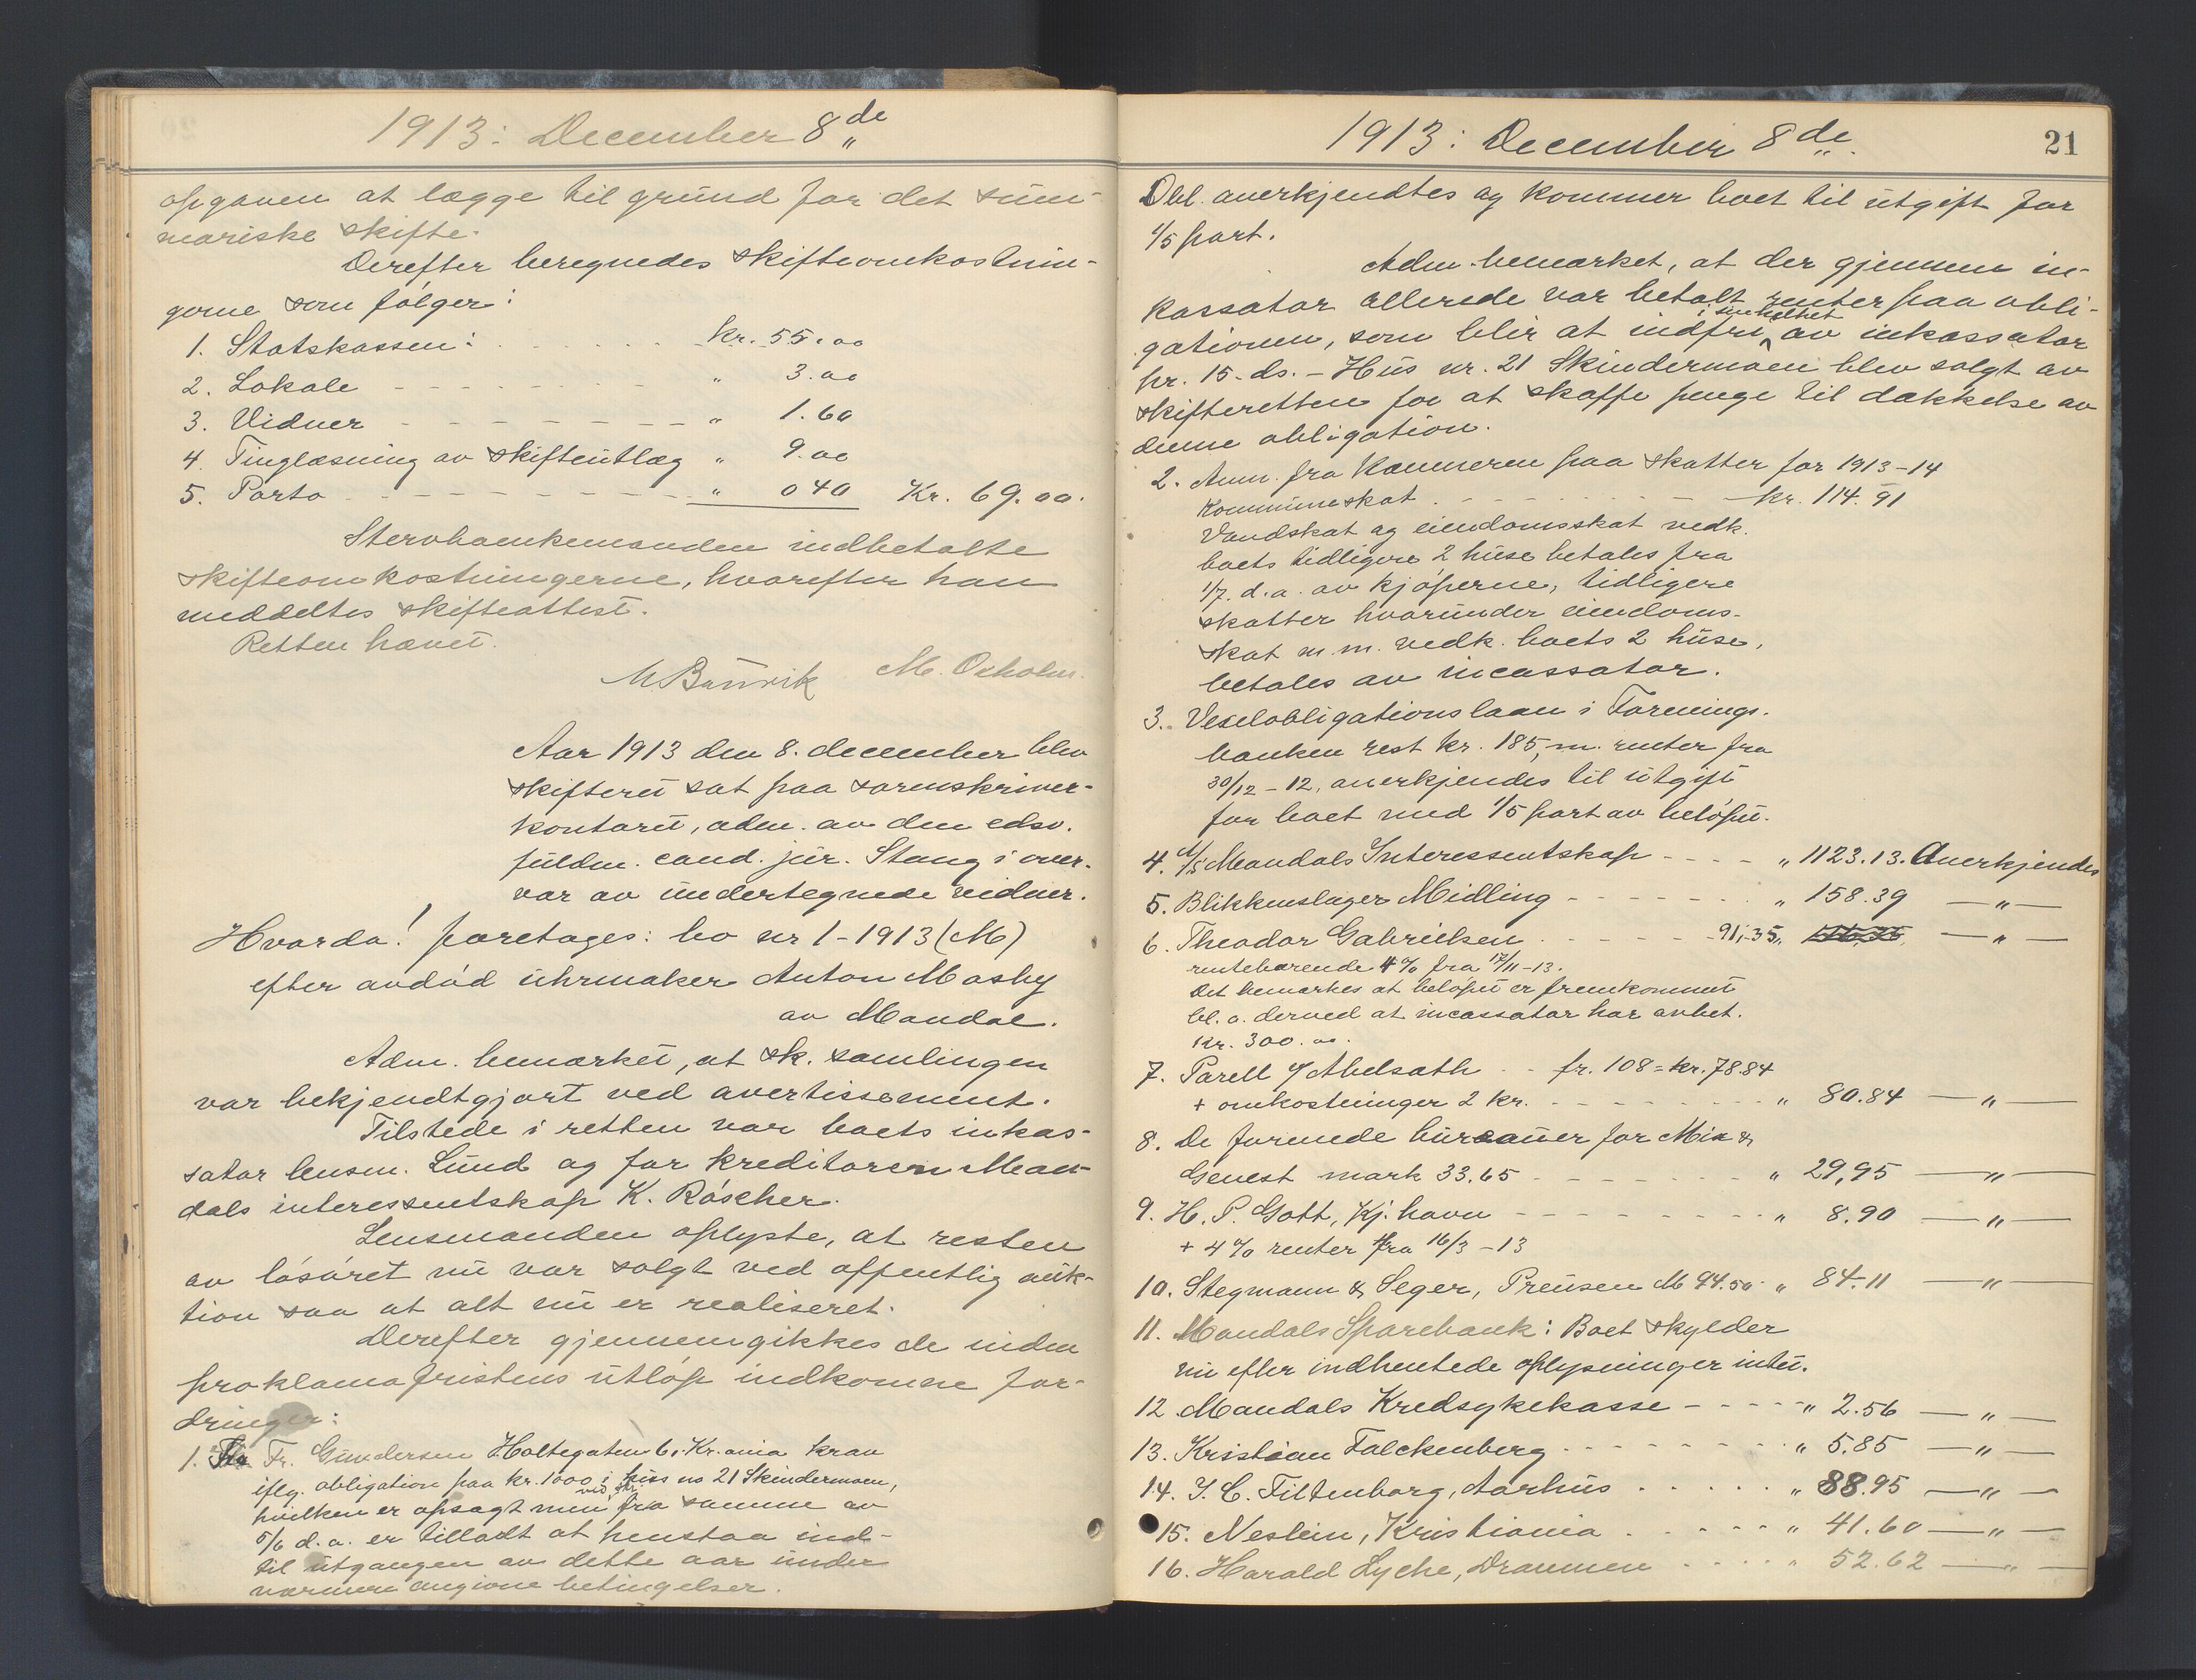 1913: December 8de
opgaven at lægge til grund for det sum-
mariske skifte.
Derefter beregnedes skifteomkostnin-
gerne som følger:
1. Statskassen: kr. 55.00
2. Lokale " 3.00
3. Vidner " 1.60
4. Tinglæsning av skifteutlæg " 9.00
5. Porto " 0 40 Kr. 69.00.
Stervboenkemanden indbetalte
skifteomkostningerne, hvorefter han
meddeltes skifteattest.
Retten hævet.
M. Oxholm
Aar 1913 den 8. december blev
skifteret sat paa sorenskriver-
kontoret, adm. av den edsv.
fuldm. cand. jur. Stang i over-
vær av undertegnede vidner.
Hvorda! foretages: bo nr 1-1913 (M)
efter avdød uhrmaker Anton Mosby
av Mandal.
Adm. bemærket, at sk. samlingen
var bekjendtgjort ved avertissement.
Tilstede i retten var boets inkas-
sator lensm. Lund og for kreditoren Man-
dals interessentskap K. Röscher.
Lensmanden oplyste, at resten
av løsøret nu var solgt ved offentlig auk-
tion saa at alt nu er realiseret.
Derefter gjennemgikkes de inden
proklamafristens utløp indkomne for-
dringer:
1. Fr. Gundersen Holtegaten 6, Kr.ania krav
iflg. obligation paa kr. 1000 i hus no 21 Skindermoen,
hvilken er opsagt men ved skr. fra samme av
5/6 d.a. er tilladt at henstaa ind-
til utgangen av dette aar under
nærmere angivne betingelser.
1913: December 8de
21
Obl. anerkjendtes og kommer boet til utgift for
1/5 part.
Adm. bemærket, at der gjennem in-
kassator allerede var betalt renter paa obli-
gationen, som blir at indfri i sin helhet av inkassator
pr. 15. ds. - Hus nr. 21 Skindermoen blev solgt av
skifteretten for at skaffe penge til dækkelse av
denne obligation.
2. Anm. fra Kæmneren paa skatter for 1913-14
Kommuneskat kr. 114.91
Vandskat og eiendomsskat vedk.
boets tidligere 2 huse betales fra
1/7. d.a. av kjøperne, tidligere
skatter hvorunder eiendoms-
skat m.m. vedk. boets 2 huse,
betales av incassator.
3. Vexelobligationslaan i Forenings-
banken rest kr. 185, m. renter fra
30/12-12, anerkjendes til utgift
for boet med 1/5 part av beløpet.
4. A/S Mandals Interessentskap " 1123.13. Anerkjendes
5. Blikkenslager Midling " 158.39 —"—
6. Theodor Gabrielsen 91,35 " —"—
rentebærende 4% fra 17/11-13.
Det bemærkes at beløpet er fremkommet
bl.a. derved at incassator har avbet.
kr. 300.00.
7. Parell & Abelsath fr. 108 = kr. 78.84
+ omkostninger 2 kr. " 80.84 —"—
8. De forenede bureauer for Mix &
Genest mark 33.65 " 29,95 —"—
9. H. P. Gott, Kj.havn " 8.90 —"—
+ 4% renter fra 16/3-13
10. Stegmann & Seger, Preusen M 94.50 " 84.11 —"—
11. Mandals Sparebank: Boet skylder
nu efter indhentede oplysninger intet.
12. Mandals Kredsykekasse " 2.56 —"—
13. Kristian Falckenberg " 5.85 —"—
14. J. C. Filtenborg, Aarhus " 88.95 —"—
15. Neslein, Kristiania " 41.60 —"—
16. Harald Lyche, Drammen " 52.62 —"—